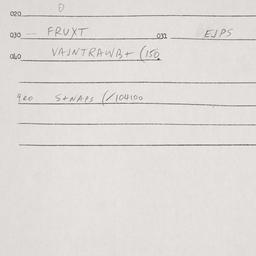 020 0
030 — FRUXT 032 EJPS
060 VAJNTRAWB+ (150
420 S+NAPS (/104100